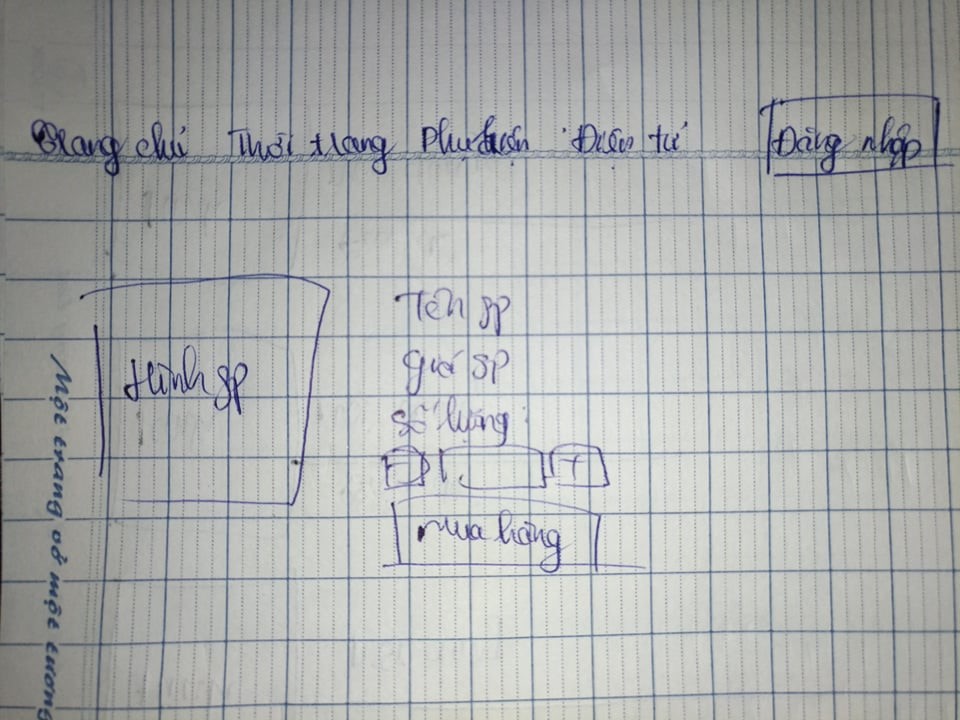 Trang chủ Thời trang Phụ kiện Điện tử Đăng nhập
Hình sp
Tên sp
giá sp
số lượng:
- +
mua hàng
Một trang vở một tương